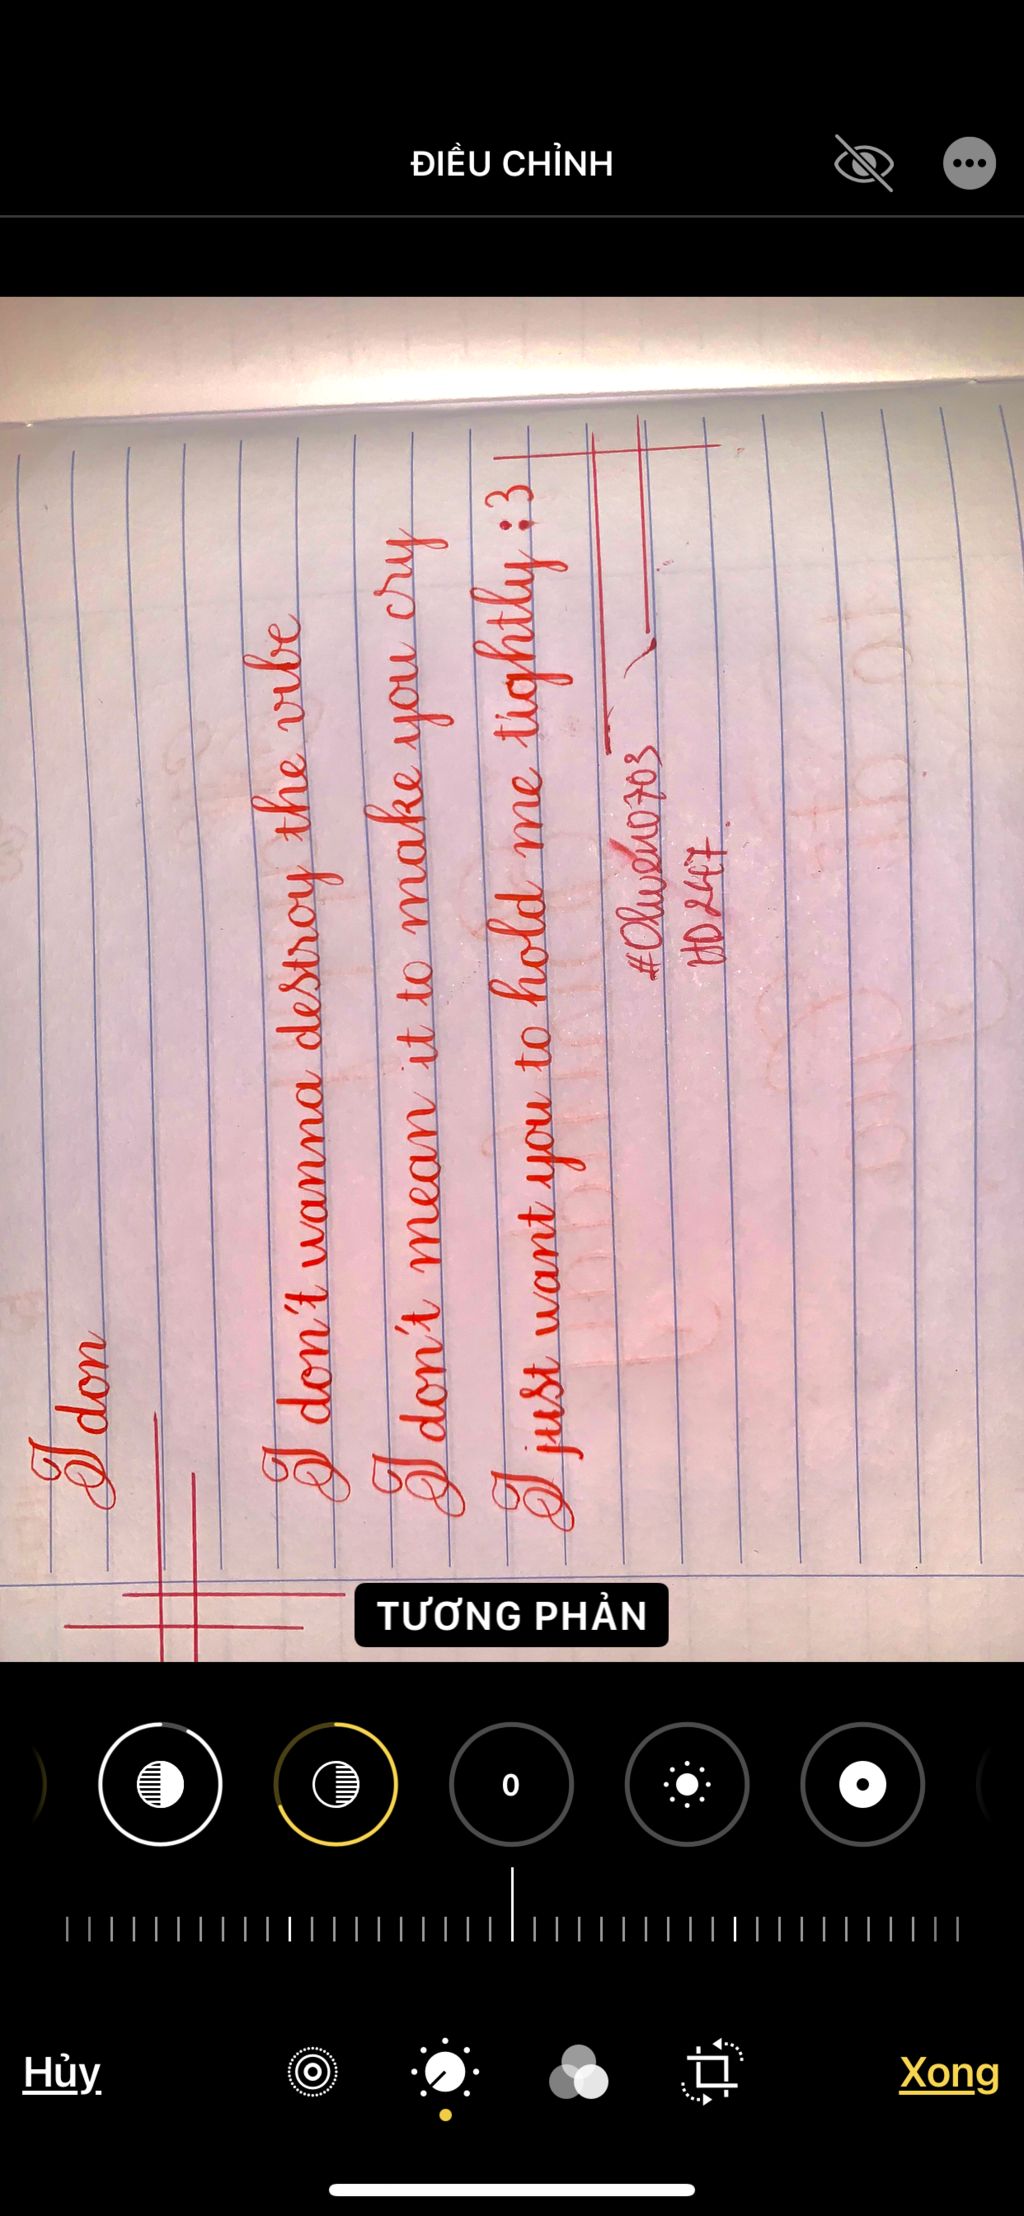 ĐIỀU CHỈNH
I don
I don't wanna destroy the vibe
I don't mean it to make you cry
I just want you to hold me tightly :3
#Olwen0703
HD247.
TƯƠNG PHẢN
0
Hủy
Xong